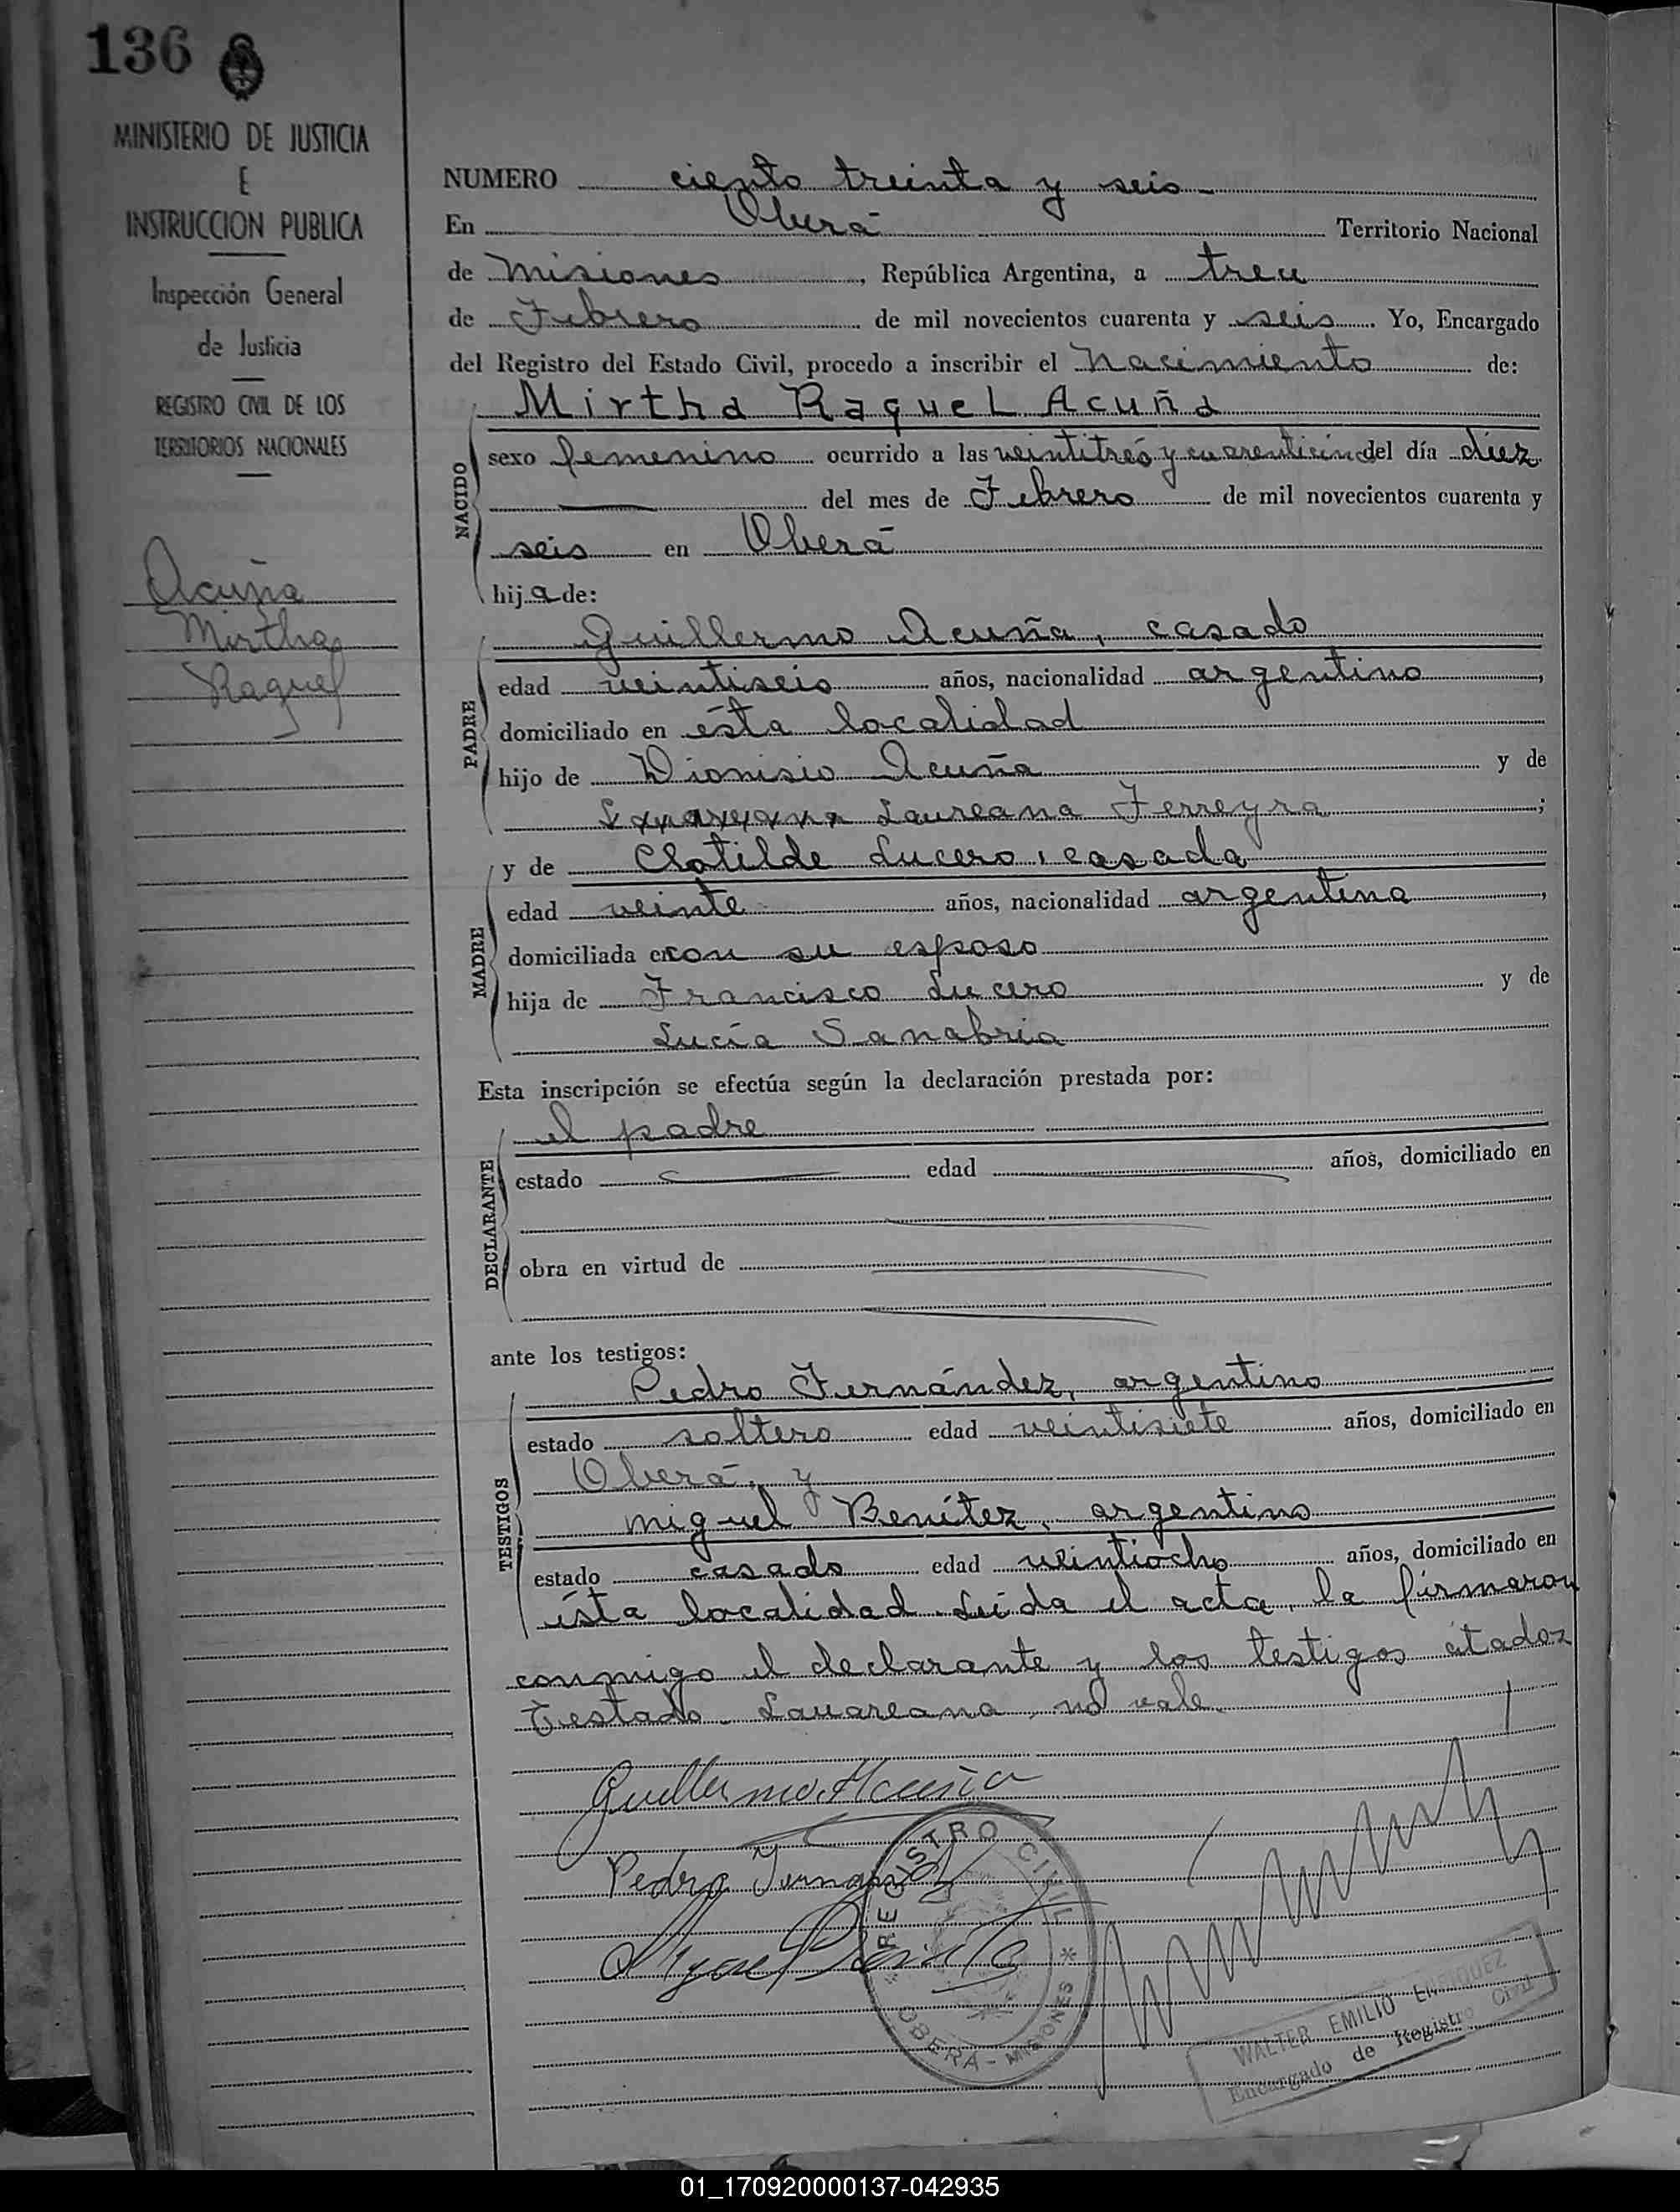 136
MINISTERIO DE JUSTICIA
E
INSTRUCCION PUBLICA
Inspección General
de Justicia
REGISTRO CIVIL DE LOS
TERRITORIOS NACIONALES
Acuña
Mirtha
Raquel
NUMERO ciento treinta y seis
En Oberá Territorio Nacional
de Misiones, República Argentina, a trece
de Febrero de mil novecientos cuarenta y seis. Yo, Encargado
del Registro del Estado Civil, procedo a inscribir el nacimiento de:
NACIDO
Mirtha Raquel Acuña
sexo femenino ocurrido a las veintitres y del día diez
del mes de Febrero de mil novecientos cuarenta y
seis en Oberá
hija de:
PADRE
Guillermo Acuña, casado
edad veintiseis años, nacionalidad argentino,
domiciliado en ésta localidad
hijo de Dionisio Acuña y de
Laureana Ferreyra;
MADRE
y de Clotilde Lucero, casada
edad veinte años, nacionalidad argentina,
domiciliada con su esposo
hija de Francisco Lucero y de
Lucía Sanabria
Esta inscripción se efectúa según la declaración prestada por:
DECLARANTE
el padre
estado edad años, domiciliado en
obra en virtud de
ante los testigos:
TESTIGOS
Pedro Fernández, argentino
estado soltero edad veintisiete años, domiciliado en
Oberá, y
Miguel Benítez, argentino
estado casado edad veintiocho años, domiciliado en
ésta localidad. Leída el acta, la firmaron
conmigo el declarante y los testigos citados
Testado. Lauareana, no vale.
Guillermo Acuña
Pedro Fernandez
Miguel Benitez
REGISTRO CIVIL
* OBERÁ - MISIONES *
WALTER EMILIO ENRIQUEZ
Encargado de Registro Civil
01_170920000137-042935